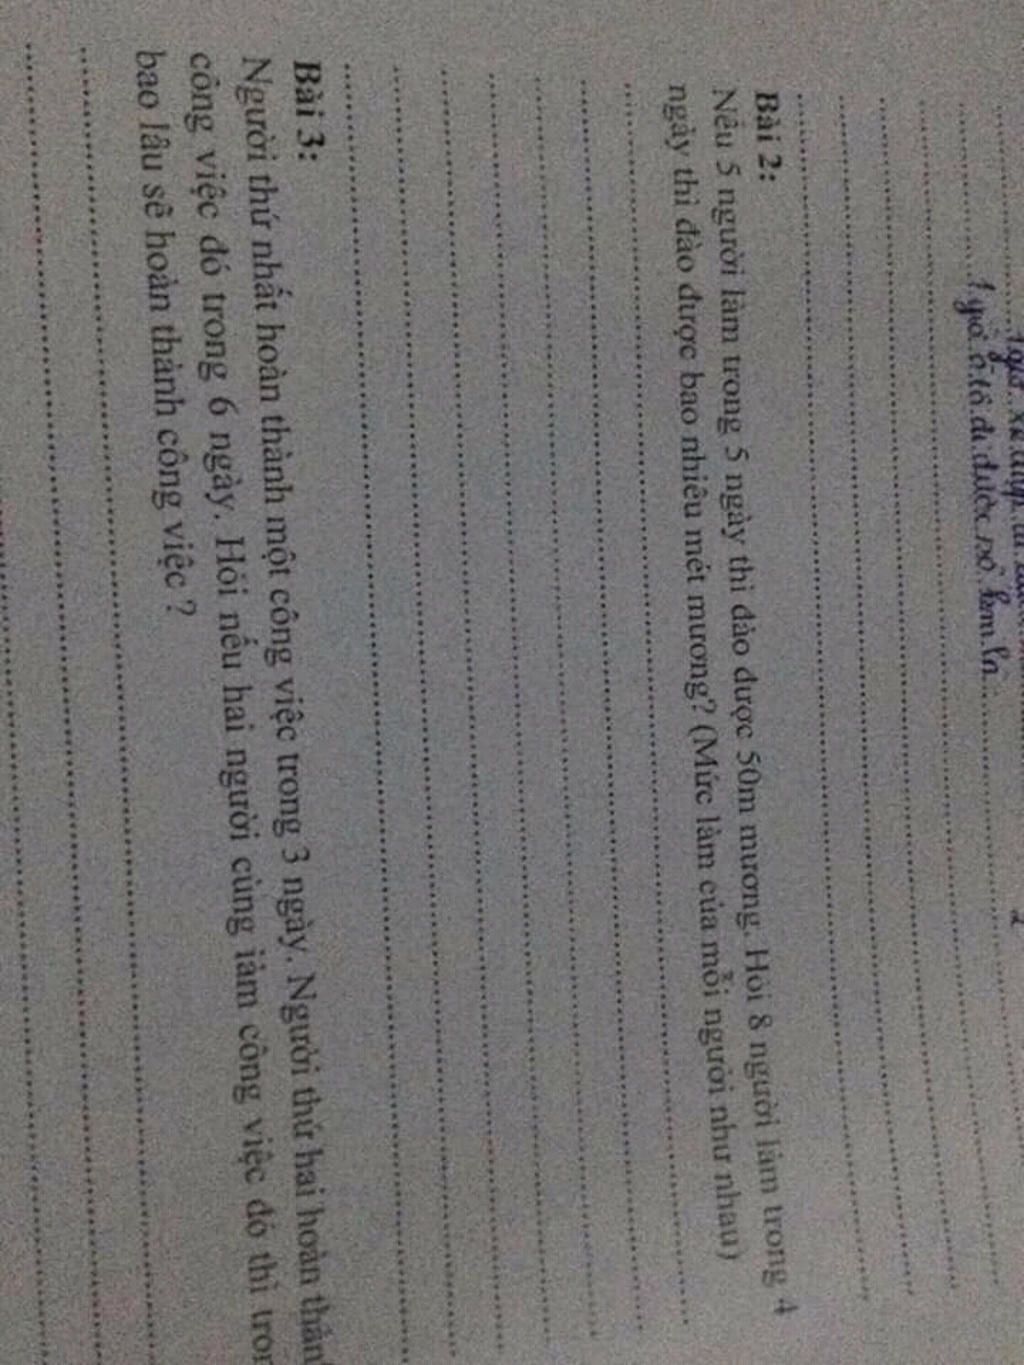 1 giờ ô tô đi được số km là
Bài 2:
Nếu 5 người làm trong 5 ngày thì đào được 50m mương. Hỏi 8 người làm trong 4
ngày thì đào được bao nhiêu mét mương? (Mức làm của mỗi người như nhau)
Bài 3:
Người thứ nhất hoàn thành một công việc trong 3 ngày. Người thứ hai hoàn thàn
công việc đó trong 6 ngày. Hỏi nếu hai người cùng làm công việc đó thì tron
bao lâu sẽ hoàn thành công việc?